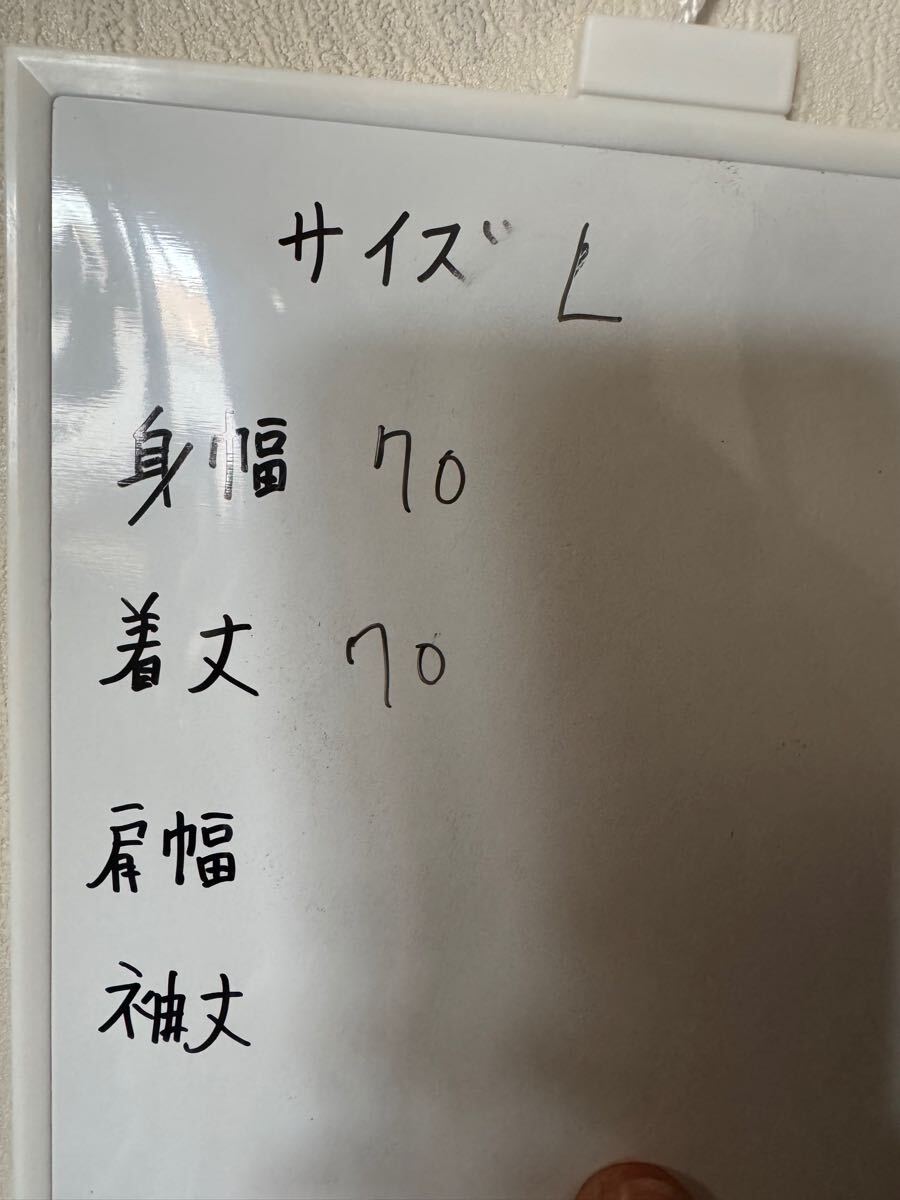 サイズ L
身幅 70
着丈 70
肩幅
袖丈